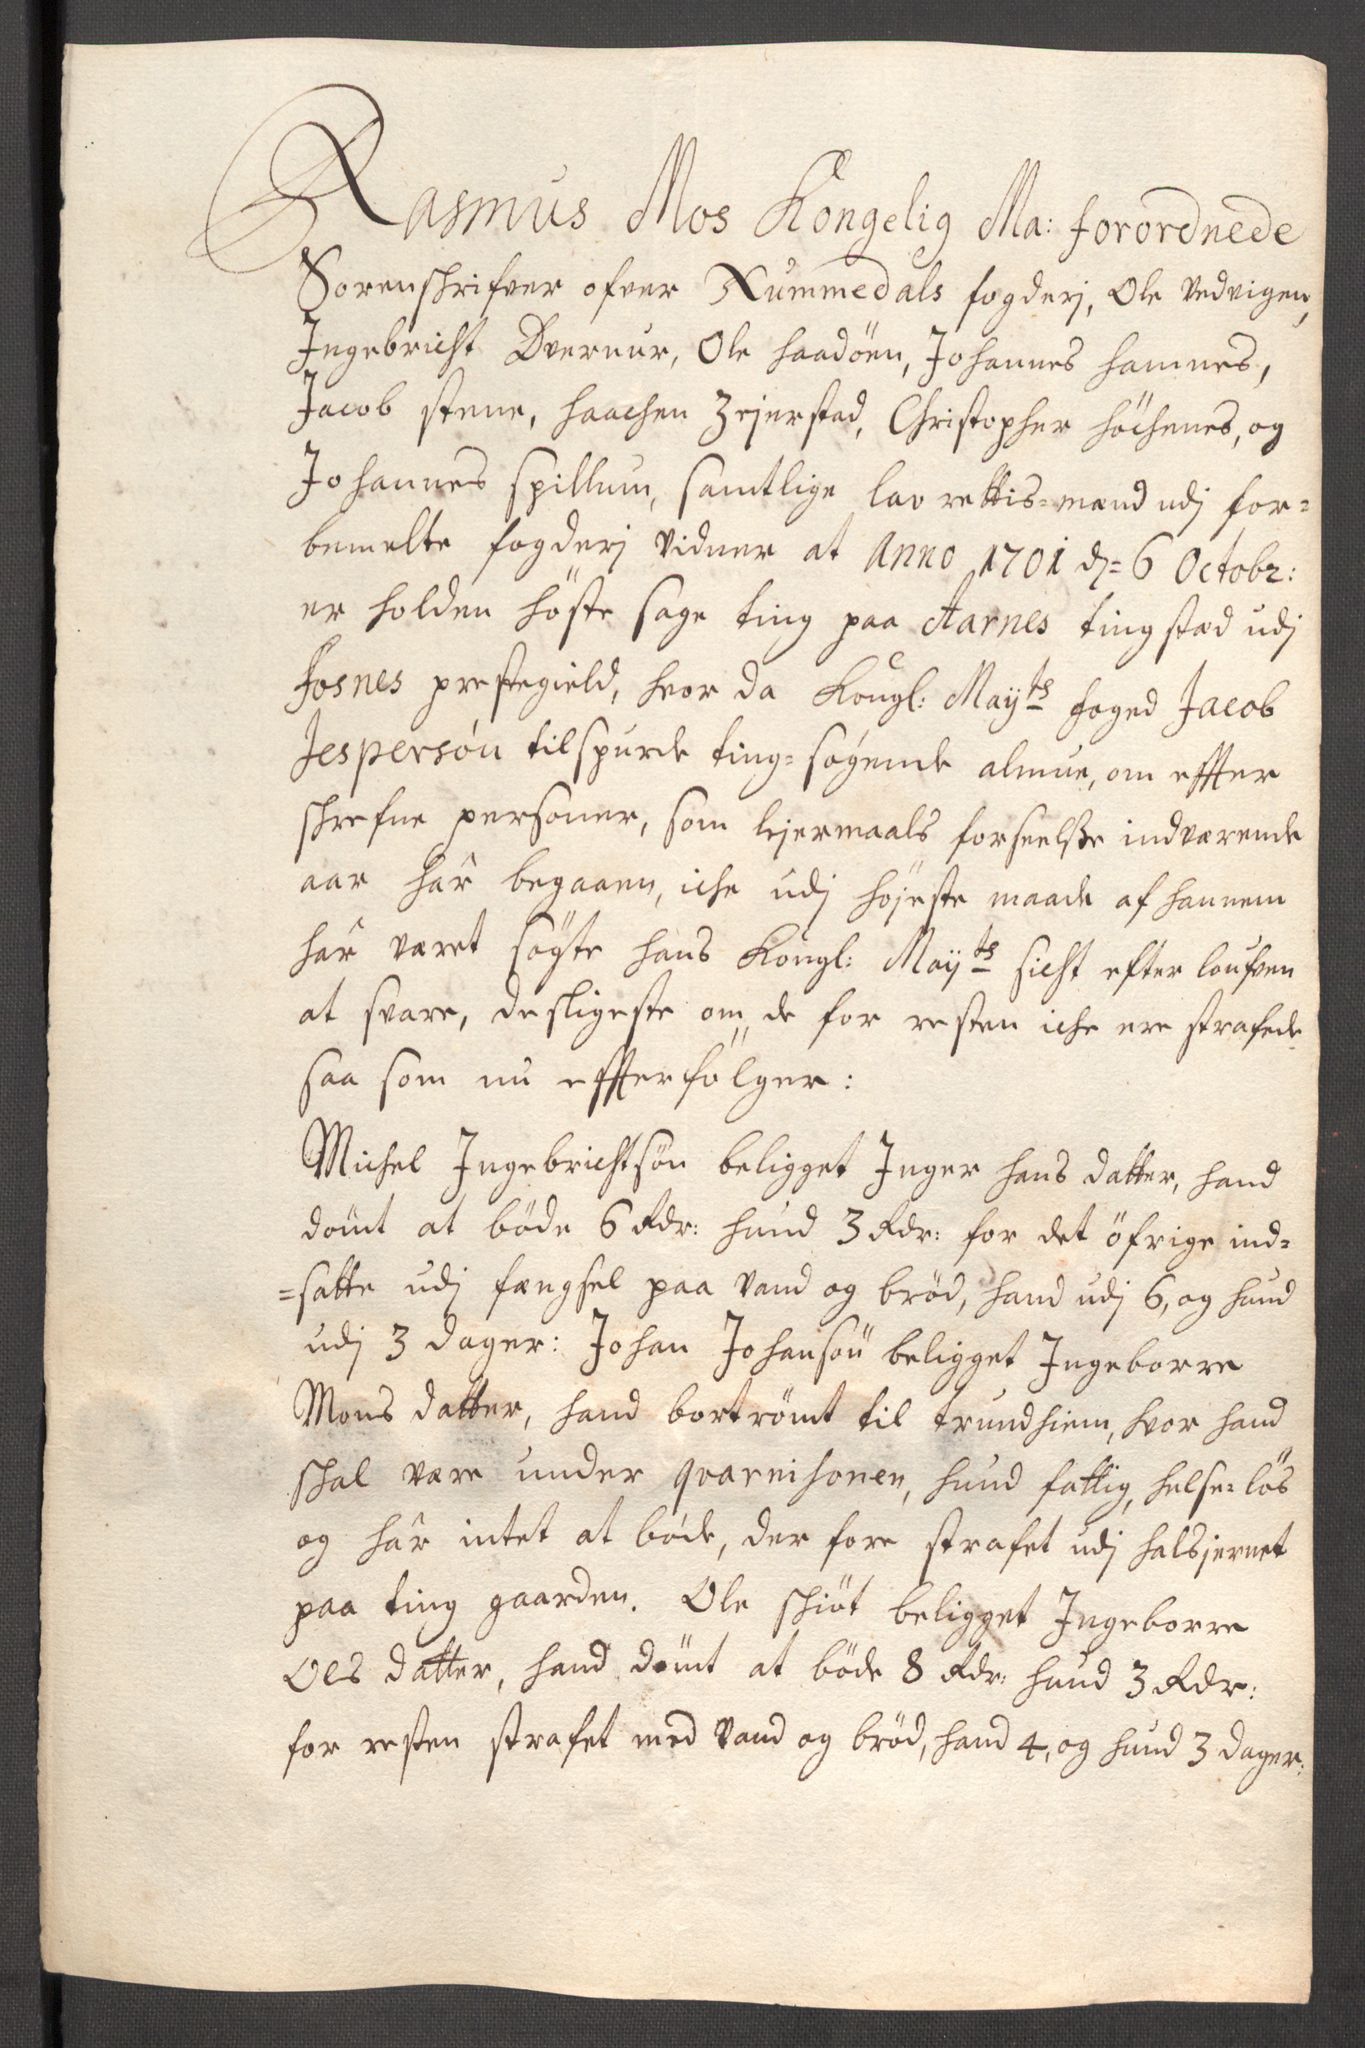 Rasmus Mos Kongelig Ma: forordnede
Sorenschrifver ofver Nummedals fogderj, Ole Vedvigen,
Ingebricht Dvernur, Ole Haadöen, Johannes Hamnes,
Jacob Stene, Haachen Zejerstad, Christopher Höchenes, og
Johannes Spillum, samtlige lav rettis-mænd udj for=
bemelte fogderj vidner at Anno 1701 dj=6 Octobr:
er holden höste sage ting paa Aarnes tingstæd udj
Fosnes prestegield, hvor da Kongl: Mayts foged Jacob
Jespersøn tilspurde ting-søgende almue, om effter
schrefne personer, som lejermaals forseelsse indværende
aar har begaaen, iche udj højeste maade af hannem
har været søgte hans Kongl: Mayts sicht efter loufven
at svare, desligeste om de for resten iche ere strafede
saa som nu effterfölger:
Michel Ingebrichtsön beligget Inger Hans datter, hand
dömt at böde 6 Rdr: hund 3 Rdr: for det öfrige ind=
=satte udj fængsel paa vand og bröd, hand udj 6, og hund
udj 3 dager: Johan Johansön beligget Ingeborre
Mons datter, hand bortrömt til Trundhiem, hvor hand
schal være under qvarnisonen, hund fattig, helse-lös
og har intet at böde, der fore strafet udj halsjernet
paa ting gaarden. Ole Schiöt beligget Ingeborre
Ols datter, hand dömt at böde 8 Rdr: hund 3 Rdr:
for resten strafet med vand og bröd, hand 4, og hund 3 dager: